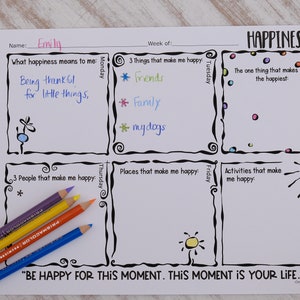 HAPPINES
Name: Emily Week of:
What happiness means to me:
Being thankful
for little things,
Monday
3 Things that make me happy:
* friends
* Family
* my dogs
Tuesday
The one thing that makes me
the happiest:
3 People that make me happy:
Thursday
Places that make me happy:
Friday
Activities that make
me happy:
"BE HAPPY FOR THIS MOMENT. THIS MOMENT IS YOUR LIFE.